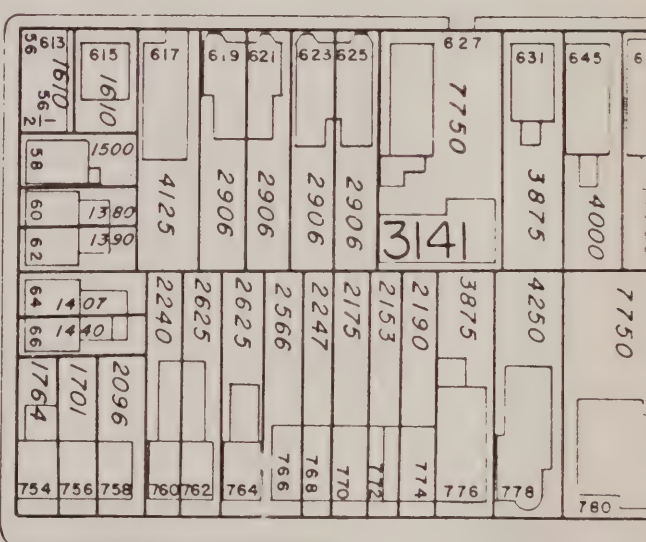 56
613
1610
56½
615
1610
617
619
621
623
625
627
7750
631
645
6
58
1500
60
1380
62
1390
4125
2906
2906
2906
2906
3141
3875
4000
64
1407
66
1440
2240
2625
2625
2566
2247
2175
2153
2190
3875
4250
7750
1764
1701
2096
754
756
758
760
762
764
766
768
770
772
774
776
778
780